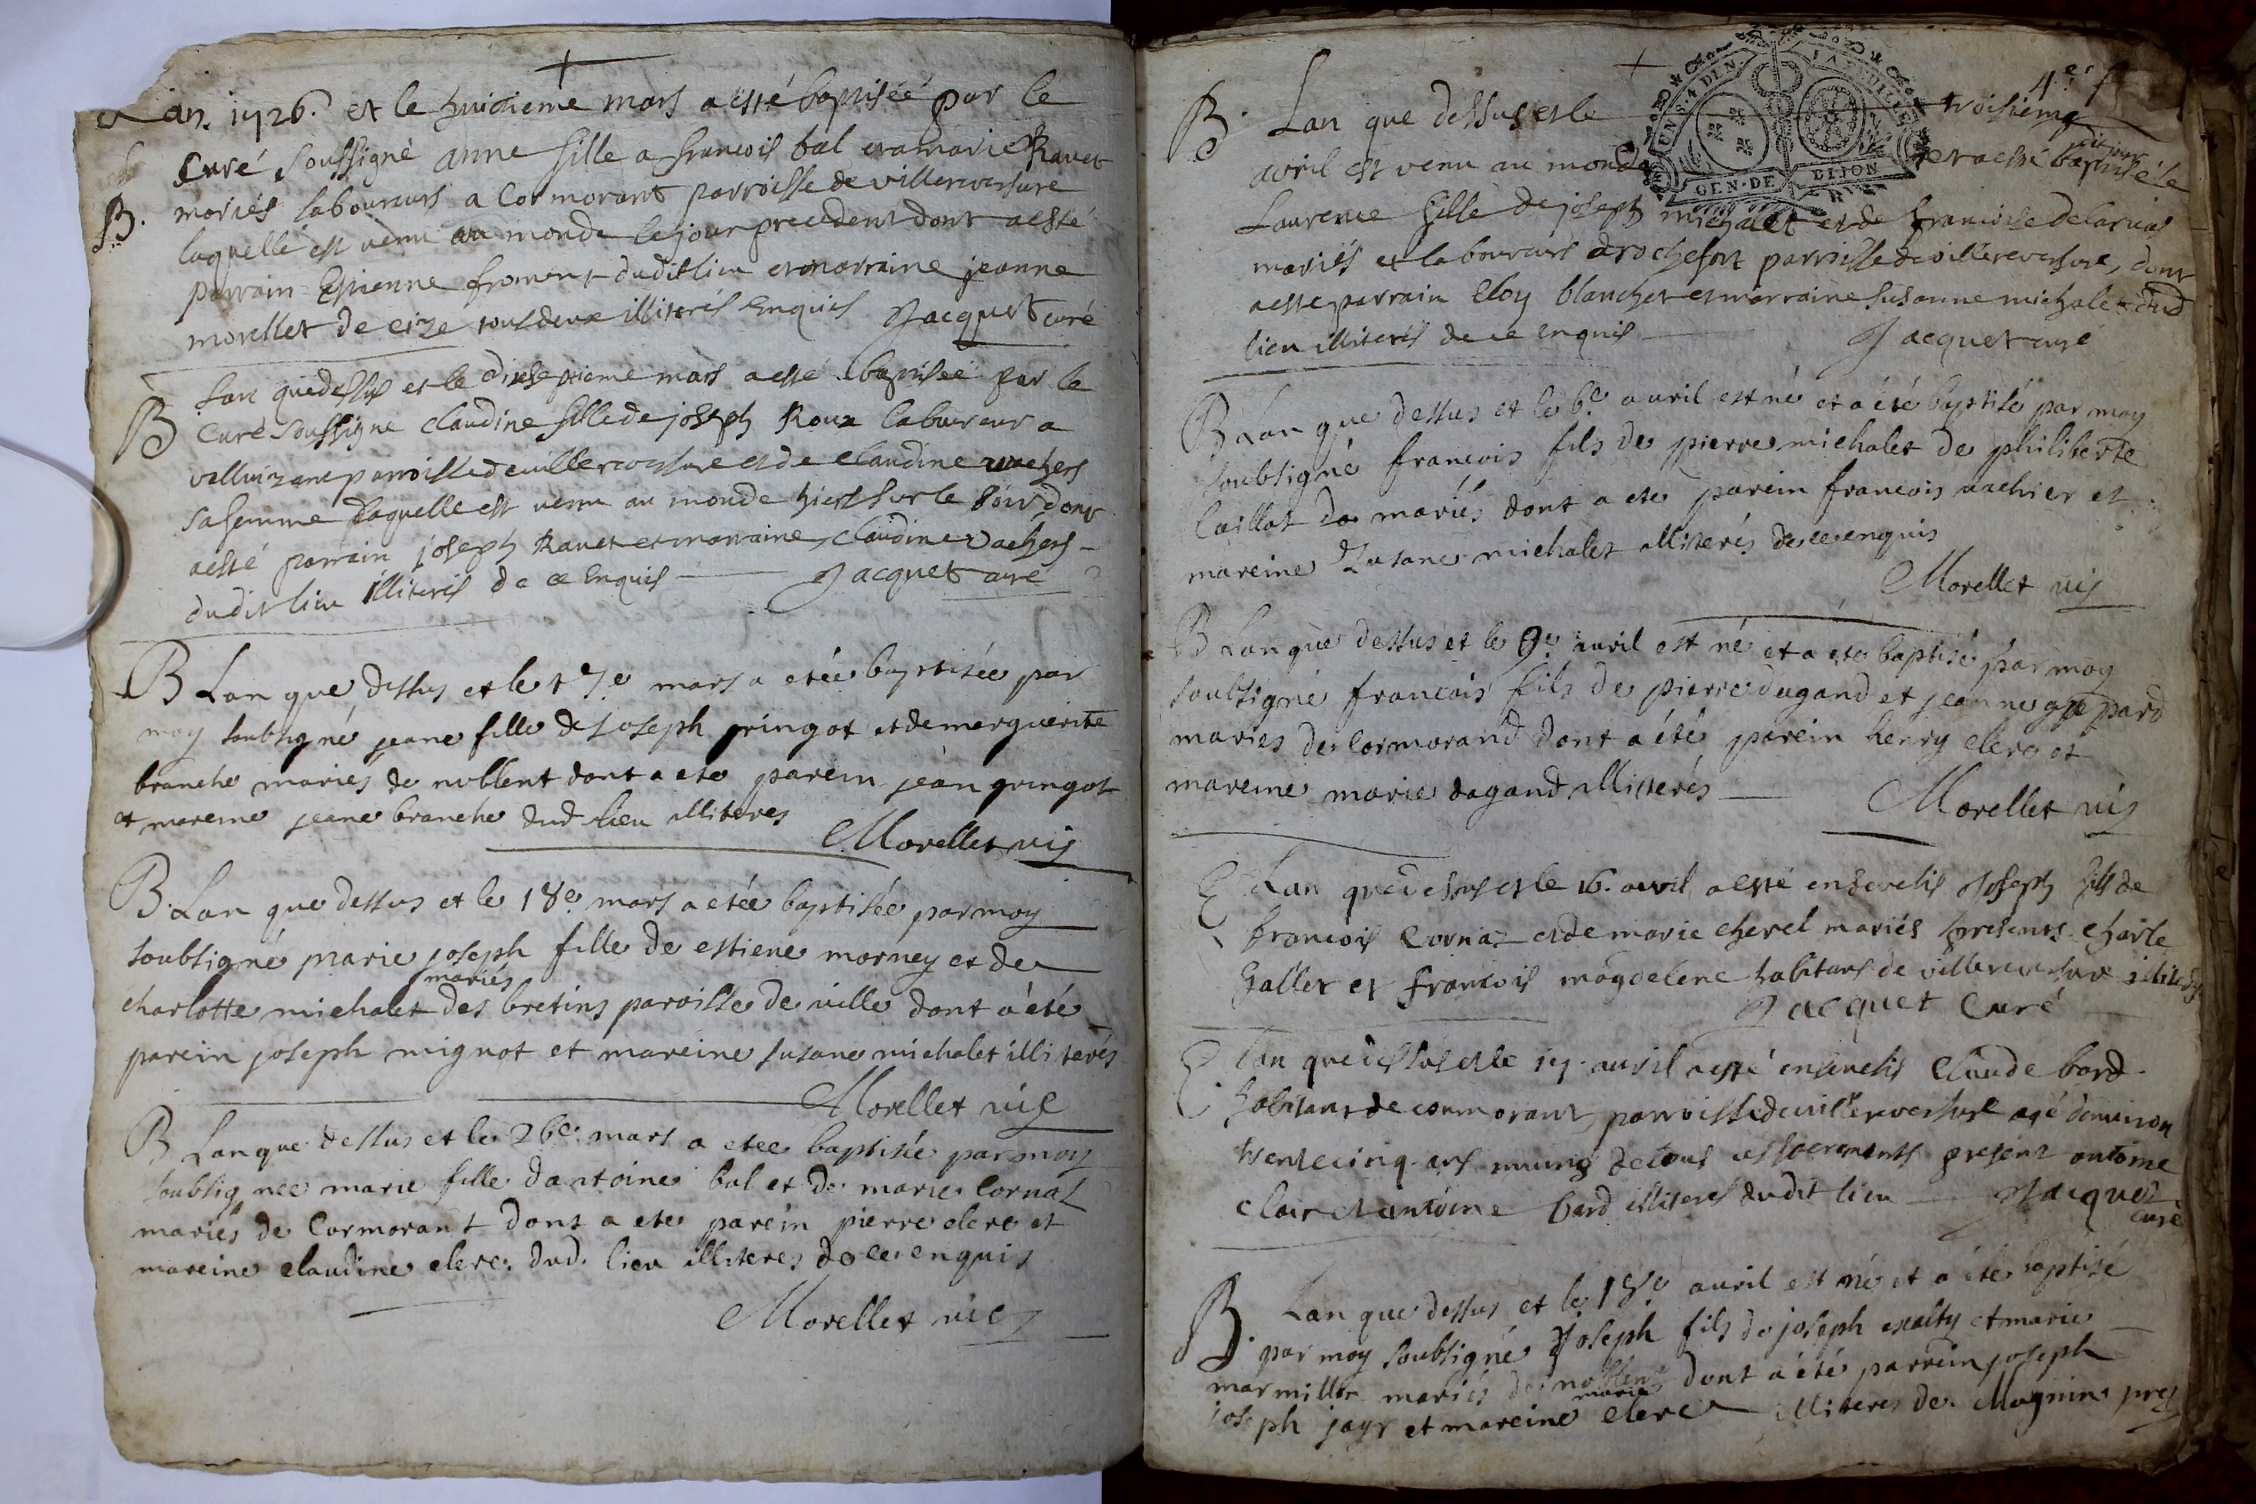 Lan. 1726. et le huictieme mars a esté baptiseé par le
B. Curé soussigné anne fille a francois bal et a marie Ravet
mariés laboureurs a Cormorant parroisse de villereversure
laquelle est venu au monde le jour precedent dont a esté
parrain Estienne froment dudit lieu et marraine jeanne
morellet de cize tous deux illiterés Enquis Jacquet curé
B Lan que dessus et le dixseptieme mars a esté baptiseé par le
Curé soussigne claudine fille de joseph Roux laboureur a
parroisse de villereversure et de claudine vachers
sa femme laquelle est venu au monde hiers sur le soir dont
a esté parrain joseph Ravet et marraine claudine vachers
dudit lieu illiterés de ce Enquis Jacquet curé
B Lan que dessus et le 17e mars a etée baptisée par
moy soubsigné jeane fille de joseph gringot et de marguerite
branche mariés de noblent dont a ete parein jean gringot
et mareine jeane branche dud lieu illiteres
Morellet vic
B. Lan que dessus et le 18e mars a etée baptisée par moy
soubsigné marie joseph fille de estiene morney et de
mariés
charlotte michalet des bretins paroisse de ville dont a été
parein joseph mignot et mareine susane michalet illiterés
Morellet vic
B Lan que dessus et le 26e mars a etee baptisée par moy
soubsignee marie fille dantoine bal et de marie Cornaz
mariés de Cormorant dont a ete parein pierre clerc et
mareine claudine clerc. dud. lieu illiteres de ce enquis
Morellet vic
4.e f
B. Lan que dessus et le troisieme
avril est venu au monde et a esté baptisé le
Laurence fille de joseph michalet et de francoise
mariés et laboureurs a rochefort parroisse de villereversure, dont
a esté parrain Eloy blanchet et marraine susanne michalet dud
lieu illiterés de ce enquis Jacquet curé
GEN. DE DIJON
B Lan que dessus et le 6e avril est né et a été baptisé par moy
soubsigné francois fils de pierre michalet de philiberte
Caillat mariés dont a ete parein francois vachier et
mareine Zusane michalet illiterés de ce enquis
Morellet vic
B Lan que dessus et le 9e avril est né et a ete baptisé par moy
soubsigné francois fils de pierre dagand et jeanne
mariés de Cormorand dont a été parein henry clerc et
mareine marie dagand illiterés
Morellet vic
E Lan que dessus et le 16. avril a esté ensevelis joseph fils de
francois Cornaz et de marie cherel mariés presents charle
hallet et francois magdelene habitans de villereversure
Jacquet Curé
E. Lan que dessus et le 17. avril a esté ensevelis Claude bard
habitant de cormorant parroisse de villereversure agé denviron
trente cinq ans muny de tous ces sacrements present antoine
clair et antoine bard illiterés dudit lieu Jacquet
curé
B. Lan que dessus et le avril est né et a été baptisé
par moy soubsigné Joseph fils de joseph et marie
mariés de noblens dont a été parrein joseph
marie
joseph jayr et mareine clerc illiteres de